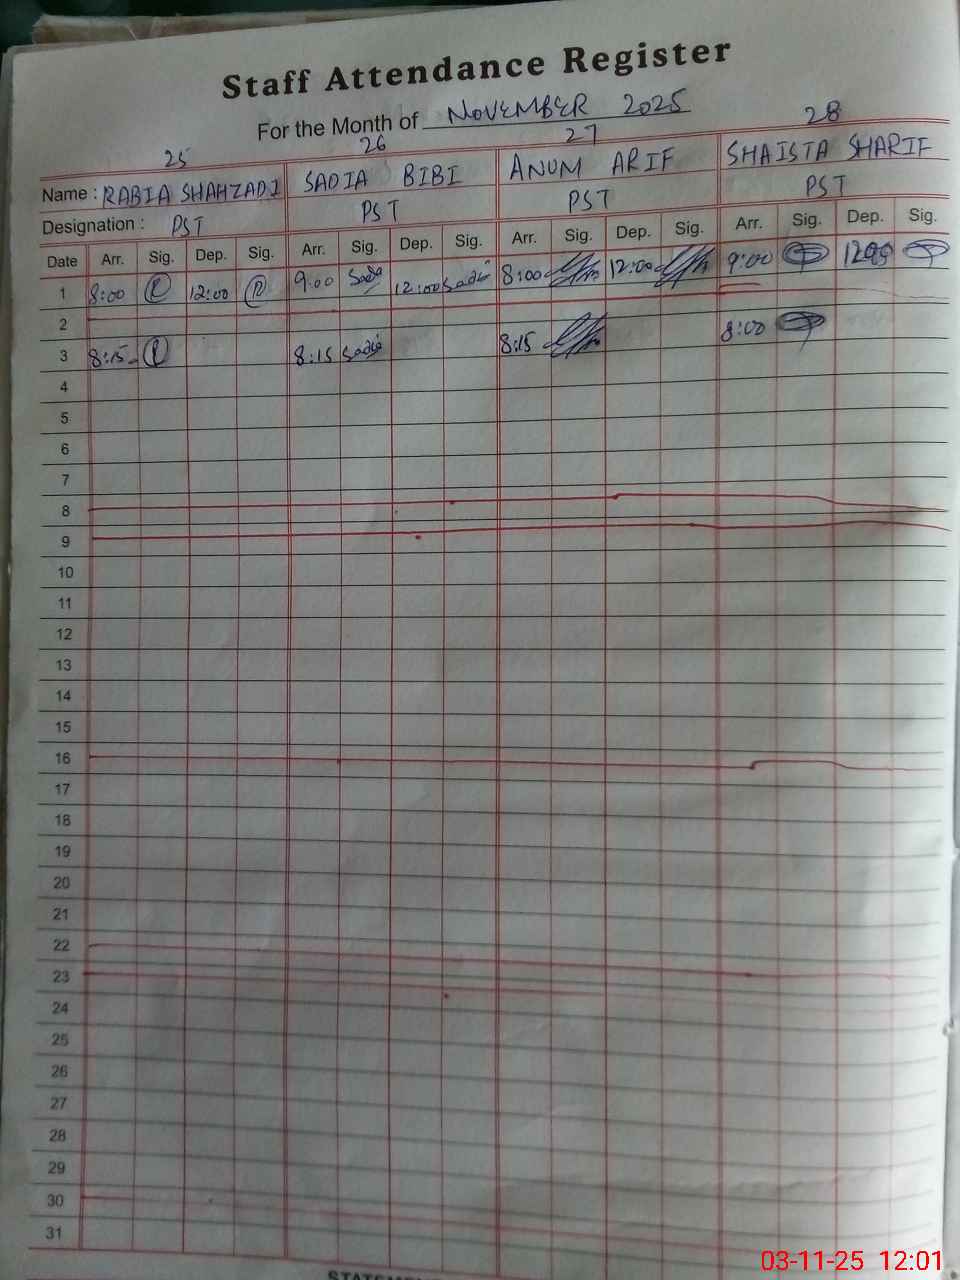 Staff Attendance Register
For the Month of NOVEMBER 2025
25 26 27 28
Name : RABIA SHAHZADI SADIA BIBI ANUM ARIF SHAISTA SHARIF
Designation : PST PST PST PST
Date Arr. Sig. Dep. Sig. Arr. Sig. Dep. Sig. Arr. Sig. Dep. Sig. Arr. Sig. Dep. Sig.
1 8:00 R 12:00 R 9:00 Sadia 12:00 Sadia 8:00 12:00 9:00
2
3 8:15 R 8:15 Sadia 8:15 8:00
4
5
6
7
8
9
10
11
12
13
14
15
16
17
18
19
20
21
22
23
24
25
26
27
28
29
30
31
03-11-25 12:01